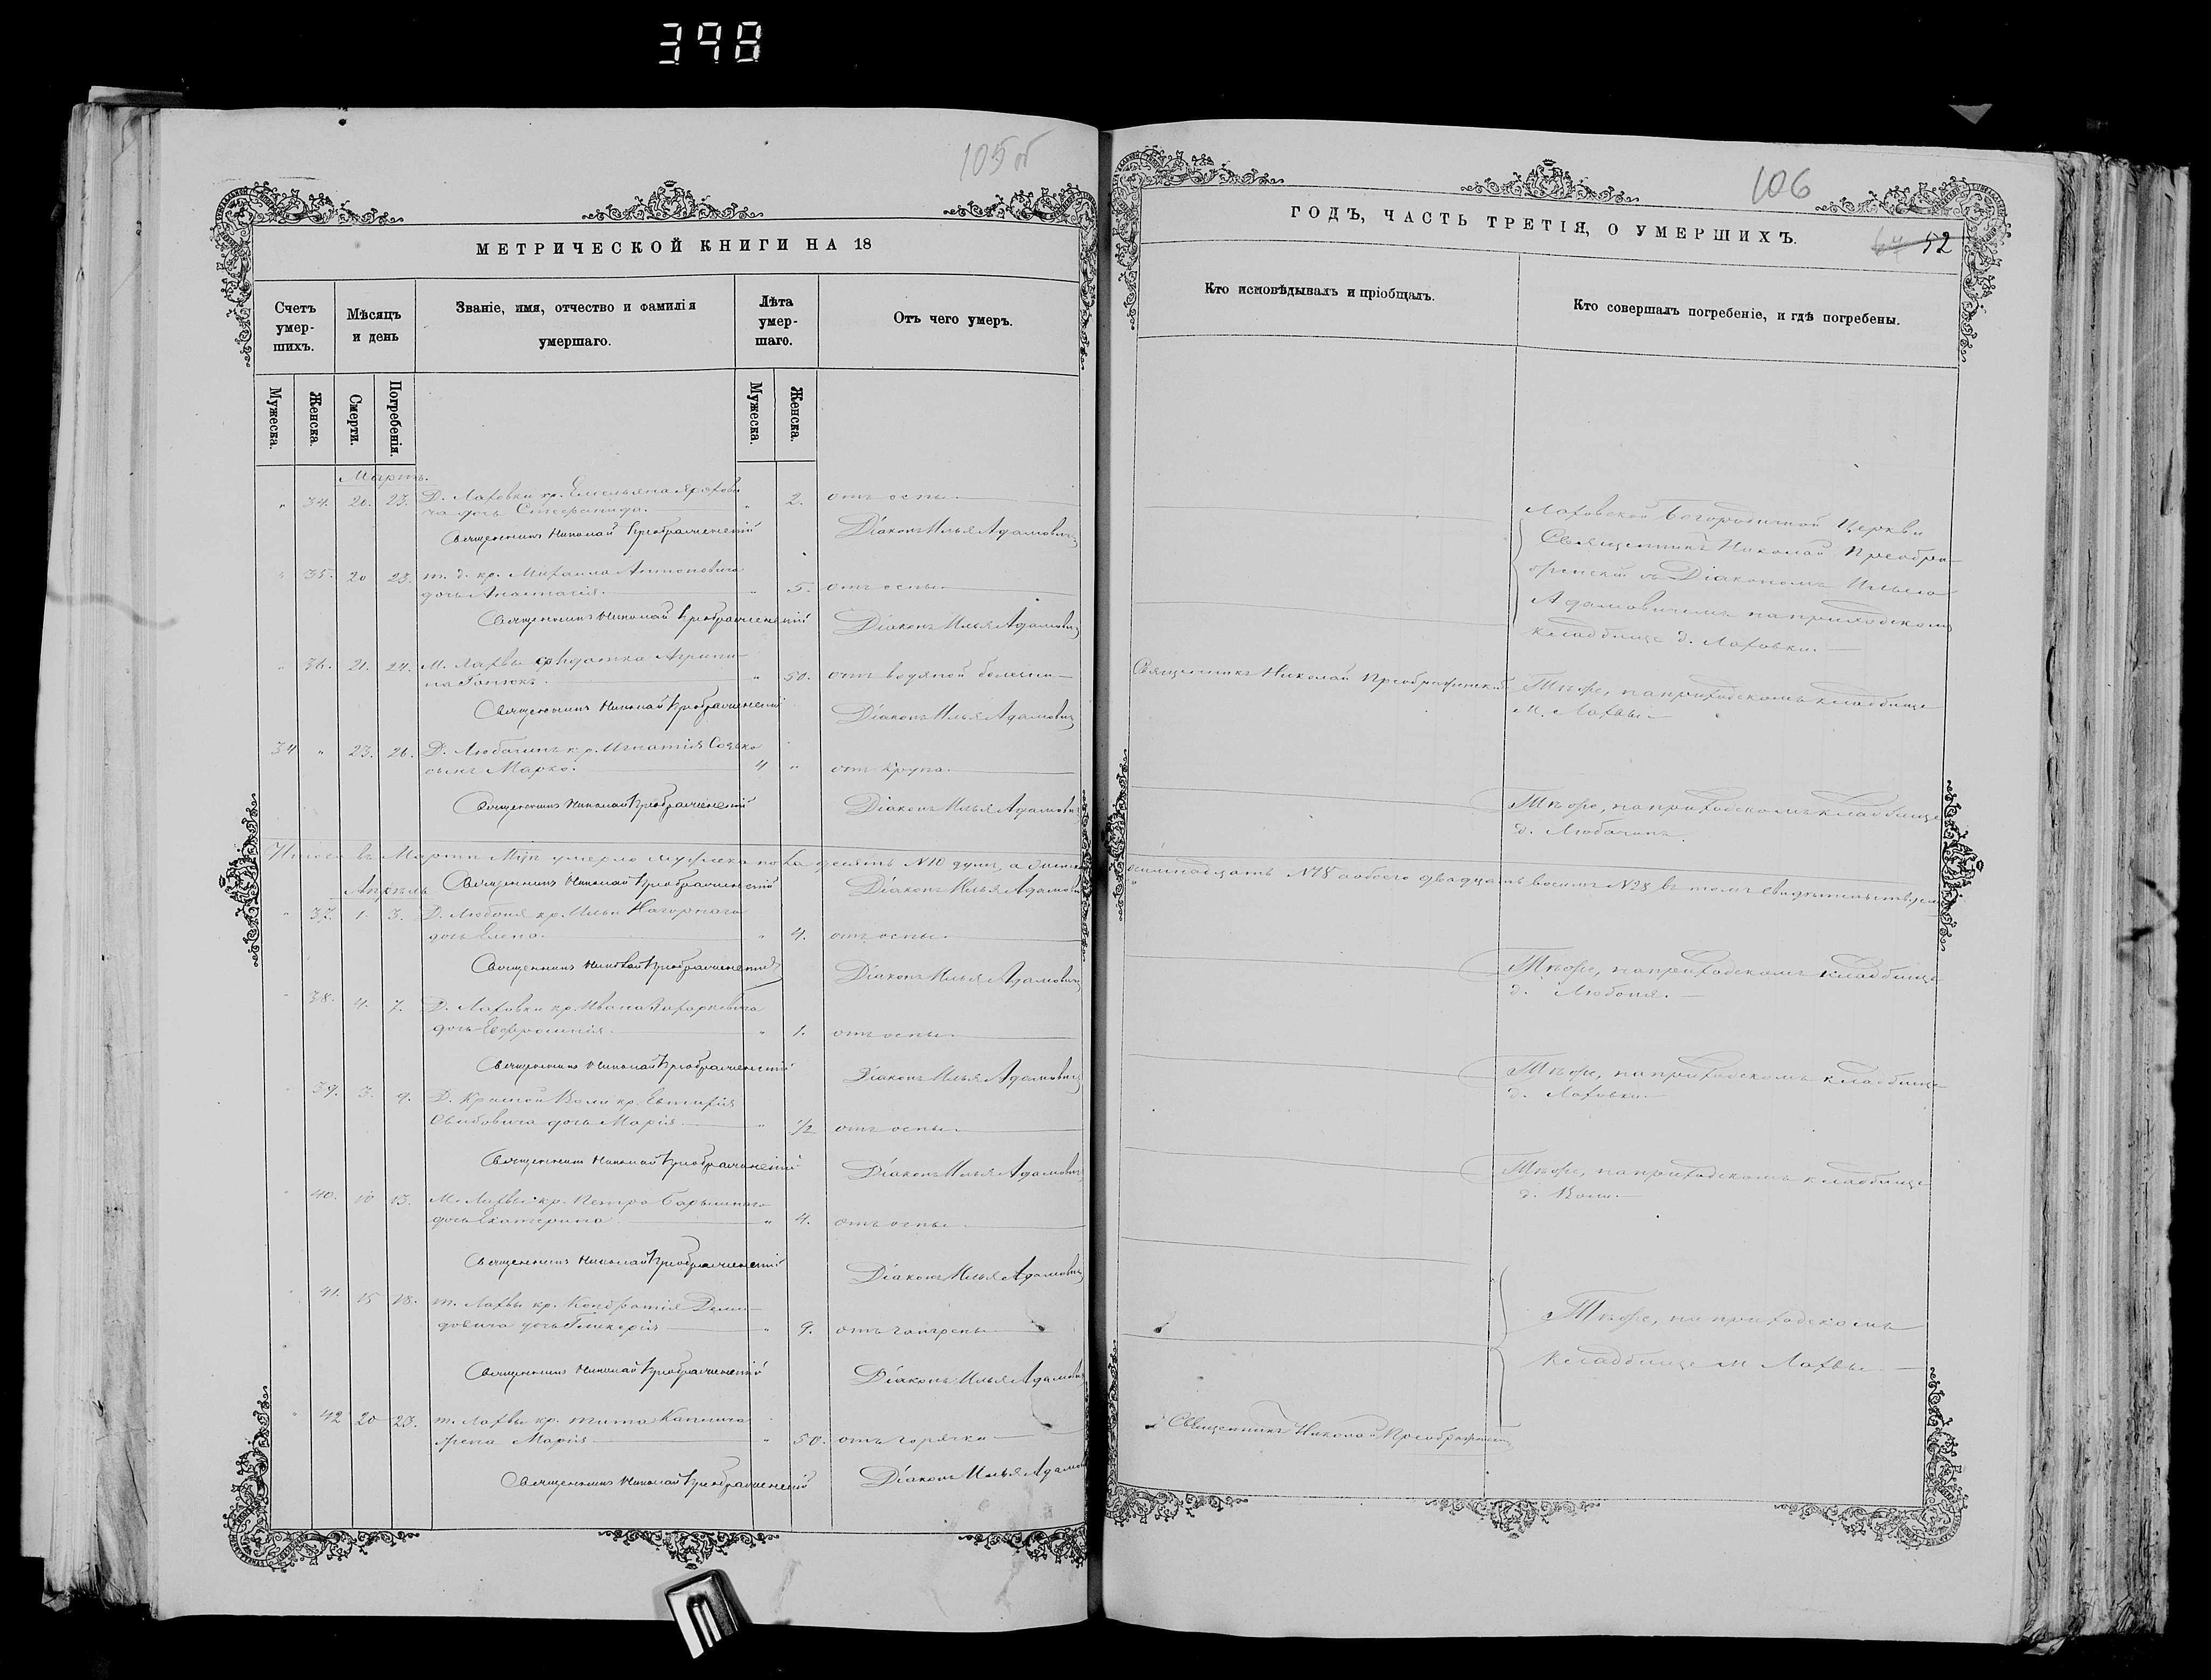 398
105об
МЕТРИЧЕСКОЙ КНИГИ НА 18
Счетъ умер-шихъ.
Мѣсяцъ и день
Званіе, имя, отчество и фамилія умершаго.
Лѣта умер-шаго.
Отъ чего умеръ.
Мужеска.
Женска.
Смерти.
Погребенія.
Мужеска.
Женска.
Мартъ.
" 34. 20. 23. Д. Лаховки кр. Емельяна
дочь Стефанида. " 2. отъ оспы
Священникъ Николай Преображенскій Діаконъ Илья Адамовичъ
" 35. 20 23. т. д. кр. Михаила Антоновича
дочь Анастасія. " 5. отъ оспы
Священникъ Николай Преображенскій Діаконъ Илья Адамовичъ
" 36. 21. 24. М. Лахвы Агрипи-
на " 50. отъ водяной болезни
Священникъ Николай Преображенскій Діаконъ Илья Адамовичъ
34 " 23. 26. Д. Любачинъ кр. Игнатія
сынъ Марко. 4 " отъ крупа.
Священникъ Николай Преображенскій Діаконъ Илья Адамовичъ
Итого въ Мартѣ умерло мужеска пола десять №10 душъ, а женска
Апрѣль Священникъ Николай Преображенскій Діаконъ Илья Адамовичъ
" 37. 1. 3. Д. Любоня кр. Ильи Нагорнаго
дочь Елена. " 4. отъ оспы
Священникъ Николай Преображенскій Діаконъ Илья Адамовичъ
" 38. 4. 7. Д. Лаховки кр. Ивана Захаркевича
дочь Евфросинія. " 1. отъ оспы
Священникъ Николай Преображенскій Діаконъ Илья Адамовичъ
" 39. 3. 9. Д. Красной Воли кр. Евтихія
дочь Марія " 1/2 отъ оспы
Священникъ Николай Преображенскій Діаконъ Илья Адамовичъ
" 40. 10 13. М. Лахвы кр. Петра
дочь Екатерина " 4. отъ оспы
Священникъ Николай Преображенскій Діаконъ Илья Адамовичъ
" 41. 15 18. т. Лахвы кр. Кондратія Деми-
довича дочь Гликерія " 9. отъ гангрены
Священникъ Николай Преображенскій Діаконъ Илья Адамовичъ
" 42 20 23. т. Лахвы кр. Тита
жена Марія " 50. отъ горячки
Священникъ Николай Преображенскій Діаконъ Илья Адамовичъ
106
ГОДЪ, ЧАСТЬ ТРЕТІЯ, О УМЕРШИХЪ.
52
Кто исповѣдывалъ и пріобщалъ.
Кто совершалъ погребеніе, и гдѣ погребены.
Лаховской Богородичной Церкви
Священникъ Николай Преобра-
женскій съ Діакономъ Ильею
Адамовичемъ на приходскомъ
кладбищѣ д. Лаховки.
Священникъ Николай Преображенскій
Тѣже, на приходскомъ кладбище
м. Лахвы
Тѣже, на приходскомъ кладбище
д. Любачинъ
восемнадцать №18 а обоего двадцать восемь №28 въ томъ свидѣтельствуемъ
Тѣже, на приходскомъ кладбище
д. Любоня.
Тѣже, на приходскомъ кладбище
д. Лаховки
Тѣже, на приходскомъ кладбище
д. Воли.
Тѣже, на приходскомъ
кладбище м Лахвы
Священникъ Николай Преображенскій